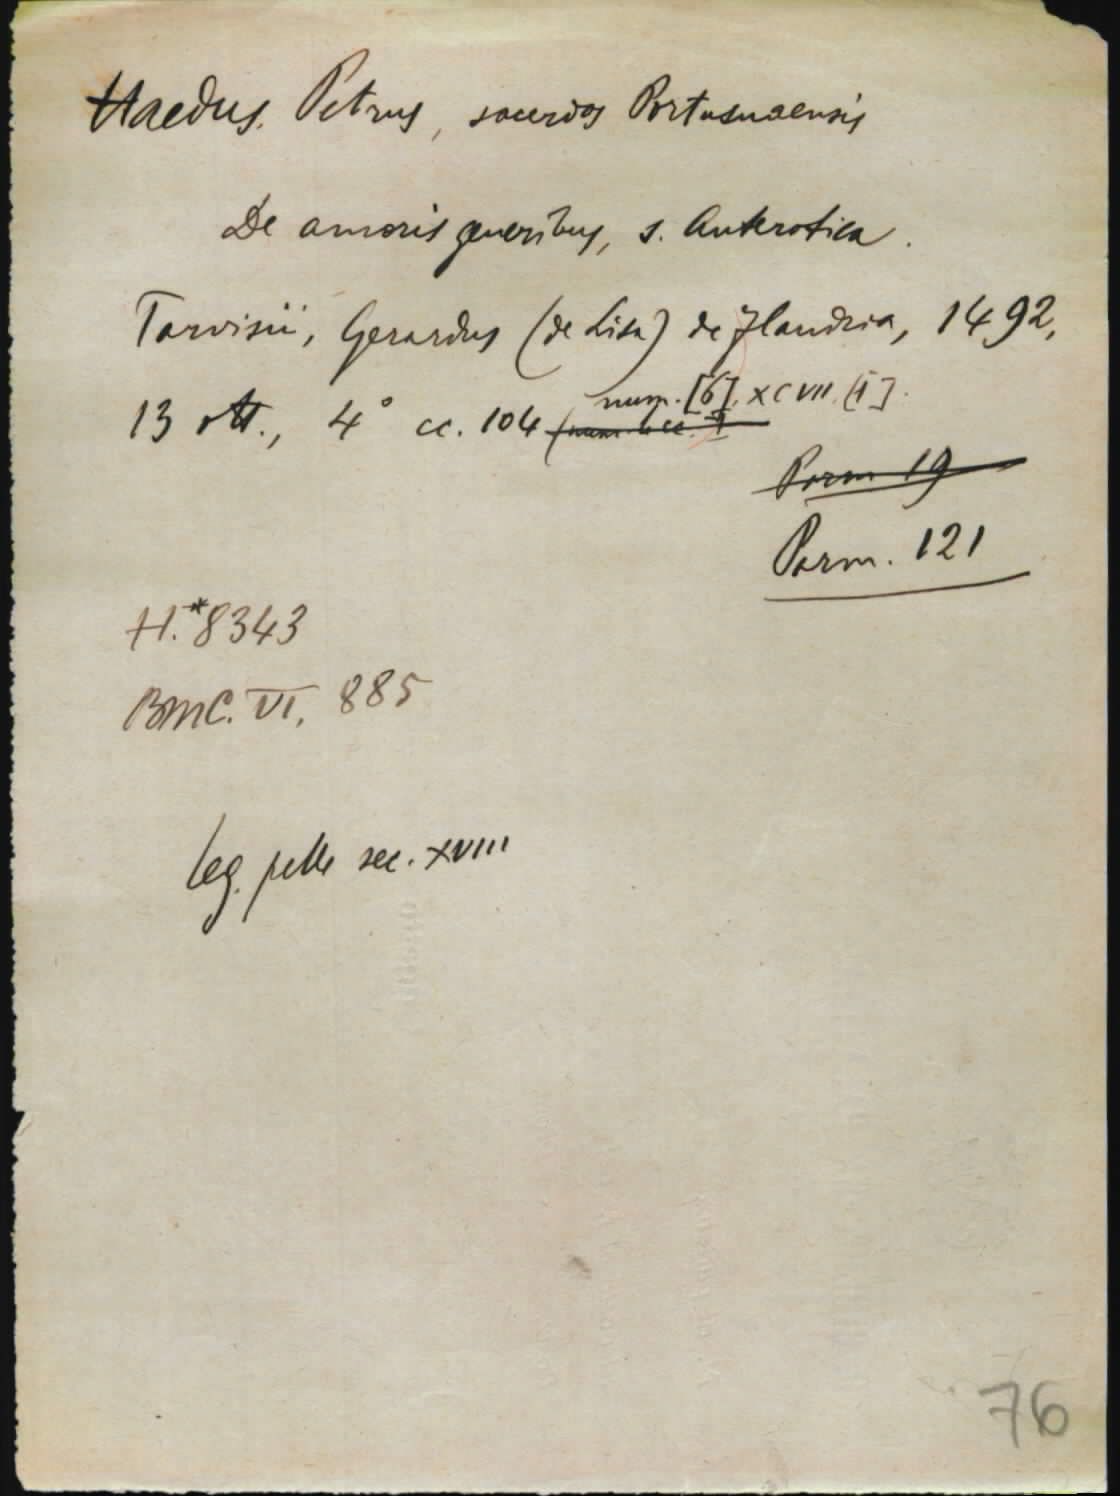 Haedus. Petrus, sacerdos Portusnaensis
De amoris generibus, s. Anterotica.
Tarvisii, Gerardus (de Lisa) de Flandria, 1492,
13 ott., 4° cc. 104 num. [6], XCVII, [1].
Parm 19
Parm. 121
H.*8343
BMC. VI, 885
Leg. pelle sec. XVIII
76